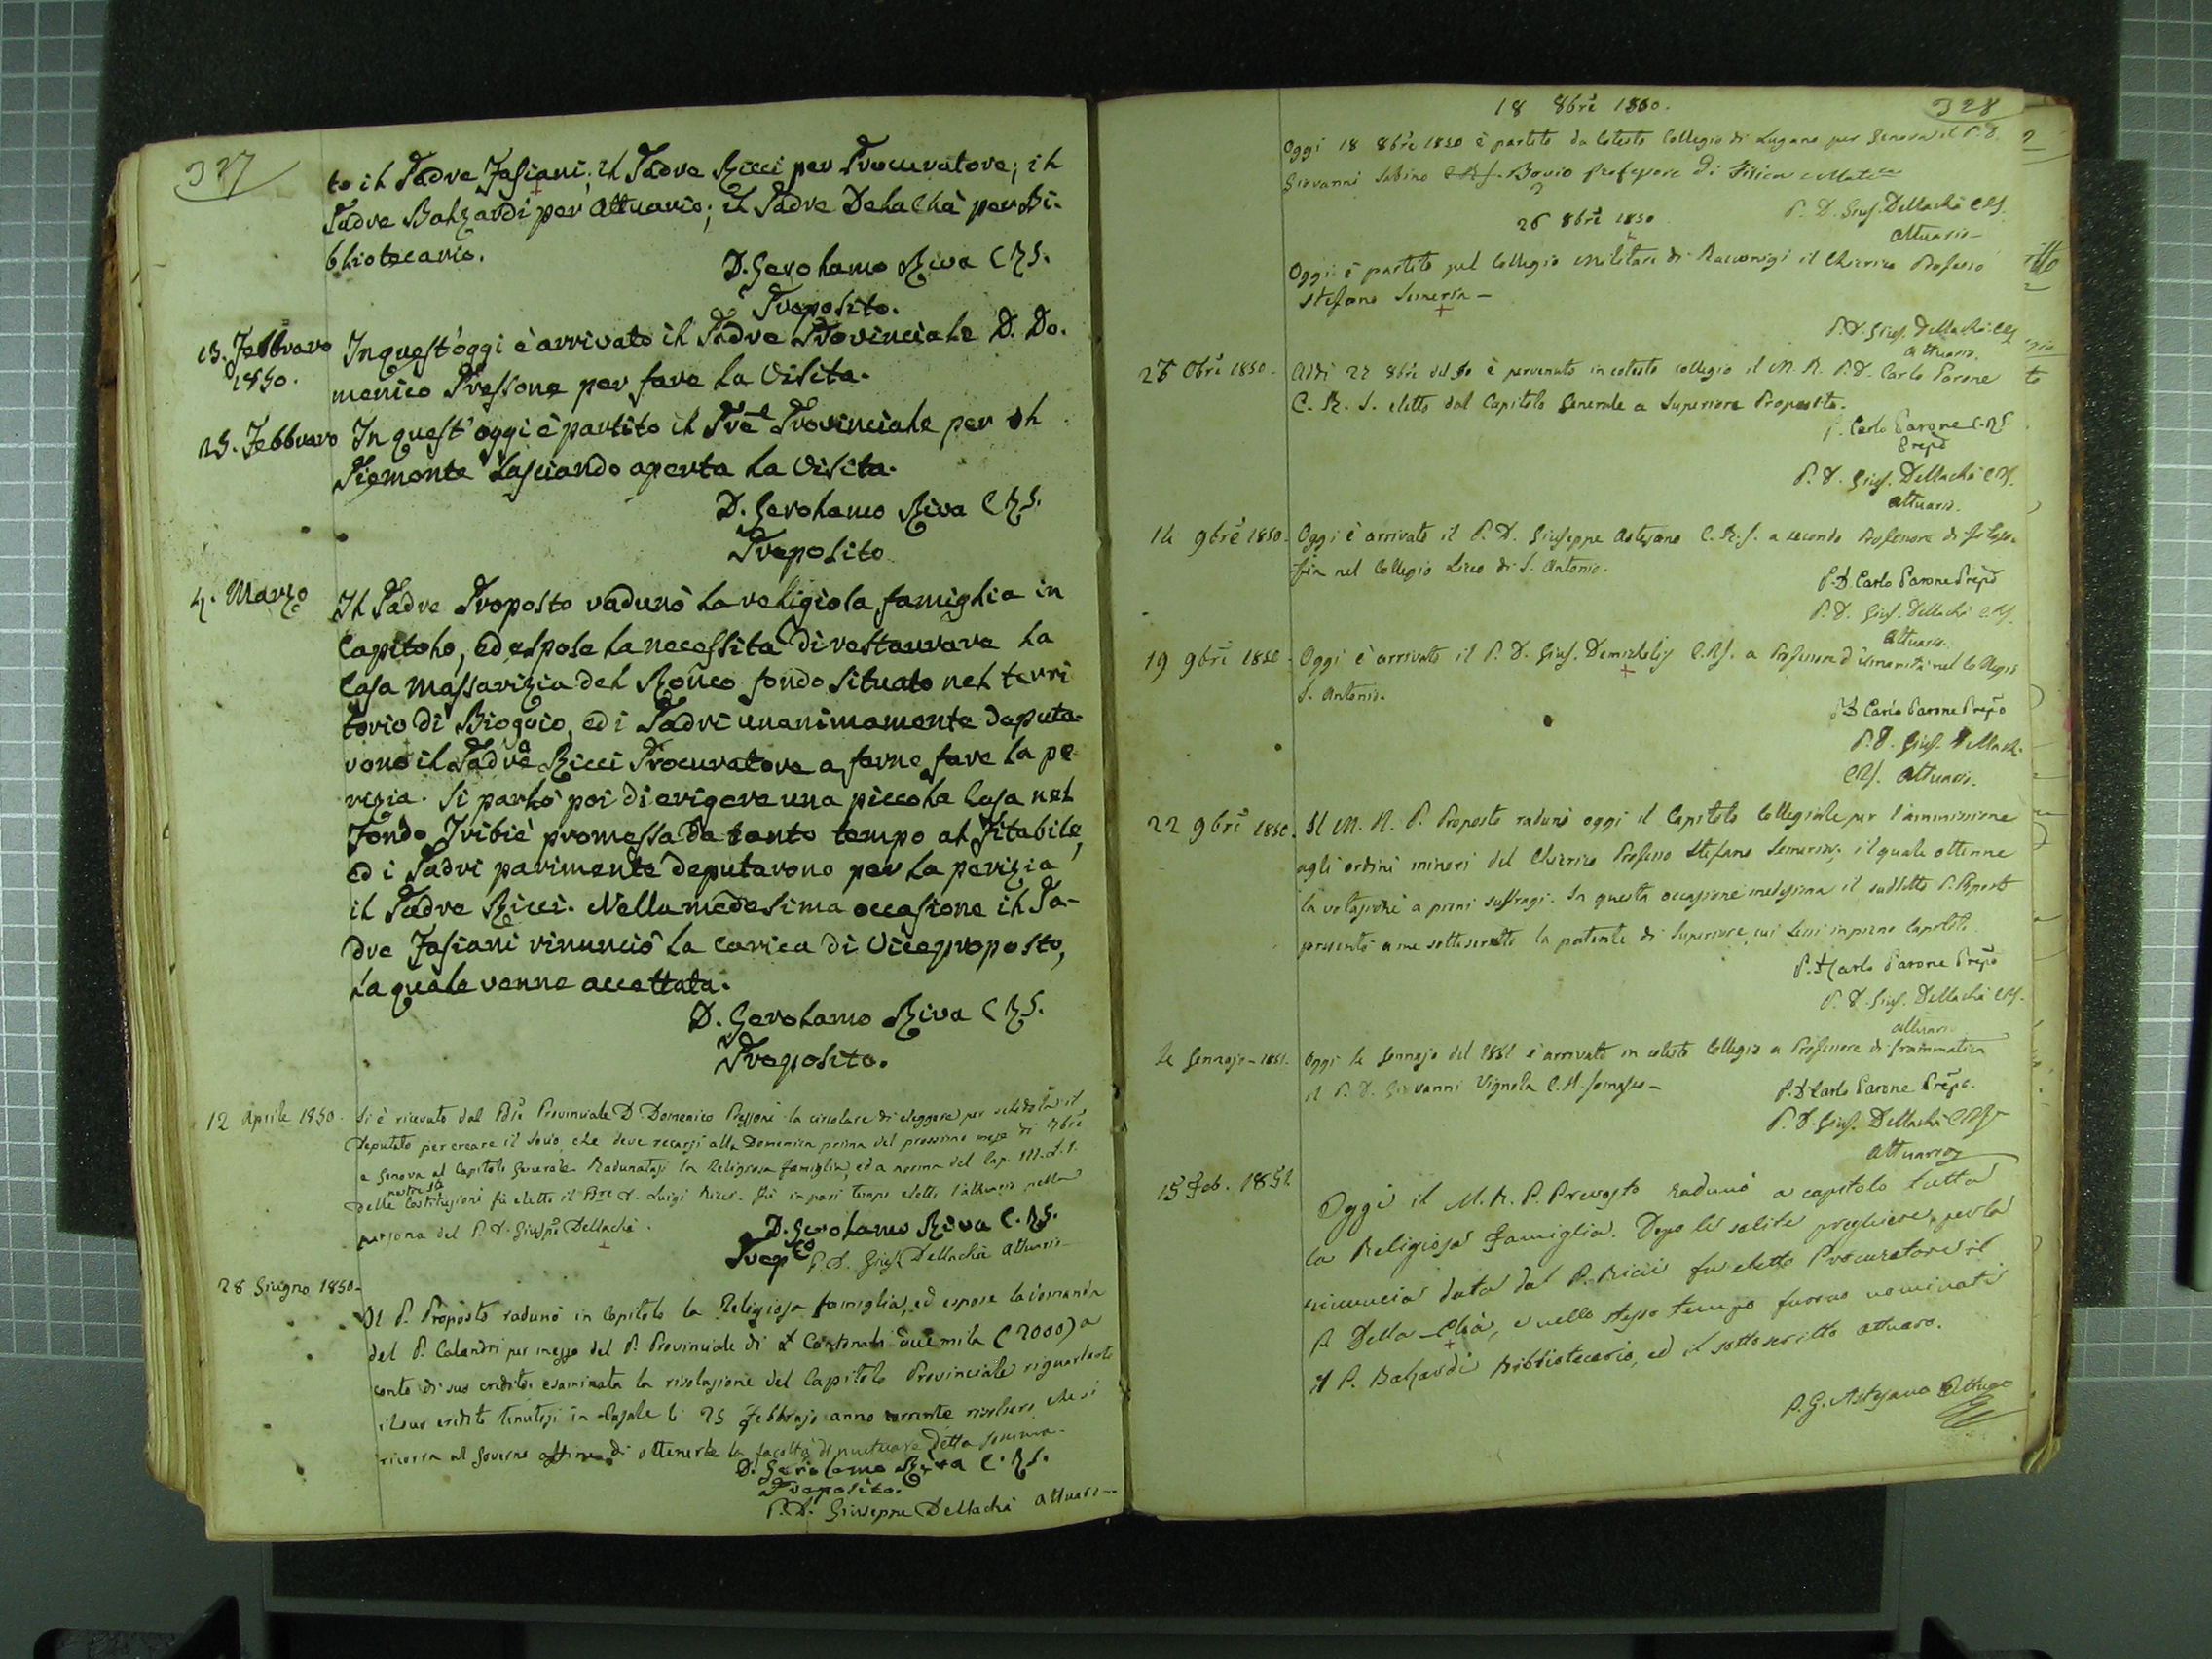 327
to il Padre Fasiani; il Padre Ricci per Procuratore; il
Padre Balzardi per Attuario; il Padre Delachà per Bi-
bliotecario.
D. Gerolamo Riva CRS.
Preposito.
13. Febbraro
1850.
In quest'oggi è arrivato il Padre Provinciale D. Do-
menico Pressone per fare la Visita.
25. Febbraro
In quest'oggi è partito il Pre Provinciale per il
Piemonte lasciando aperta la Visita.
D. Gerolamo Riva CRS.
Preposito
4. Marzo
Il Padre Proposto radunò la religiosa famiglia in
Capitolo, ed espose la necessità di restaurare la
Casa massarizia del Ronco fondo situato nel terri
torio di Bioggio, ed i Padri unanimamente deputa-
rono il Padre Ricci Procuratore a farne fare la pe
rizia. Si parlò poi di erigere una piccola Casa nel
Fondo Tribiè promessa da tanto tempo al Fitabile,
ed i Padri parimente deputarono per la perizia
il Padre Ricci. Nella medesima occasione il Pa-
dre Fasiani rinunciò la carica di Viceproposto,
la quale venne accettata.
D. Gerolamo Riva CRS.
Preposito.
12 Aprile 1850.
Si è ricevuto dal Pdre Provinciale D Domenico Pressone la circolare di eleggere per schedola il
Deputato per creare il Socio, che deve recarsi alla Domenica prima del prossimo mese di 7bre
a Genova al Capitolo Generale. Radunatasi la Religiosa famiglia, ed a norma del Cap. III. L. 1.
delle nostre Costituzioni fu eletto il Pdre D. Luigi Ricci. Fu in pari tempo eletto l'attuario nella
persona del P. D. Giuspe Dellachà.
D. Gerolamo Riva C.RS.
Prepto
P. D. Gius. Dellachà Attuario
28 Giugno 1850.
Il P. Proposto radunò in Capitolo la Religiosa famiglia, ed espose la domanda
del P. Calandri per mezzo del P. Provinciale di duemila (2000) a
conto di suo credito. esaminata la risoluzione del Capitolo Provinciale riguardante
il suo credito tenutosi in Casale li 25 Febbrajo anno corrente risolsero che si
ricorra al Governo affine di ottenerle la facoltà di mutuare detta somma.
D. Gerolamo Riva C.RS.
Preposito.
P. D. Giuseppe Dellachà attuario
328
18 8bre 1850.
Oggi 18 8bre 1850 è partito da Cotesto Collegio di Lugano per Genova il P. D.
Giovanni Sabino CRS. Bovio Professore di Fisica e Matca
P. D. Gius. Dellachà CRS.
attuario
26 8bre 1850
Oggi è partito pel Collegio militare di Racconigi il Chierico Professo
Stefano Semeria
P. D. Gius. Dellachà CRS
attuario.
27 8bre 1850.
Addì 27 8bre del 50 è pervenuto in cotesto collegio il M. R. P. D. Carlo Parone
C. R. S. eletto dal Capitolo Generale a Superiore Proposto.
P. Carlo Parone C.R.S.
Prepo
P. D. Gius. Dellachà CRS.
attuario.
14 9bre 1850.
Oggi è arrivato il P. D. Giuseppe Astesano C. R. S. a secondo Professore di filoso-
fia nel Collegio Liceo di S. Antonio.
P. D. Carlo Parone Prepo
P. D. Gius. Dellachà CRS.
attuario.
19 9bre 1850.
Oggi è arrivato il P. D. Gius. Demichelis C.RS. a Professore d'umanità nel Collegio
S. Antonio.
P. D Carlo Parone Prepo
P. D. Gius. Dellach.
CRS. attuario.
22 9bre 1850.
Il M. R. P. Proposto radunò oggi il Capitolo Collegiale per l'ammissione
agli ordini minori del Chierico Professo Stefano Semeria; il quale ottenne
la votazione a pieni suffragi. In questa occasione medesima il suddetto P. Proposto
presentò a me sottoscritto la patente di Superiore, cui lessi in pieno Capitolo.
P. D. Carlo Parone Prepo
P. D. Gius. Dellachà CRS.
attuario
Gennajo 1851.
Oggi Gennajo del 1851 è arrivato in cotesto Collegio a Professore di Grammatica
il P. D. Giovanni Vignola C. R. Somasco
P. D Carlo Parone Prepo.
P. D. Gius. Dellachà CRS
attuario
15 Feb. 1851.
Oggi il M. R. P. Prevosto radunò a capitolo tutta
la Religiosa Famiglia. Dopo le solite preghiere, per la
rinuncia data dal P. Ricci fu eletto Procuratore il
P. Della-Chà, e nello stesso tempo furono nominati
il P. Balzardi Bibliotecario, ed il sottoscritto attuaro.
P. G. Astesano Attuaro